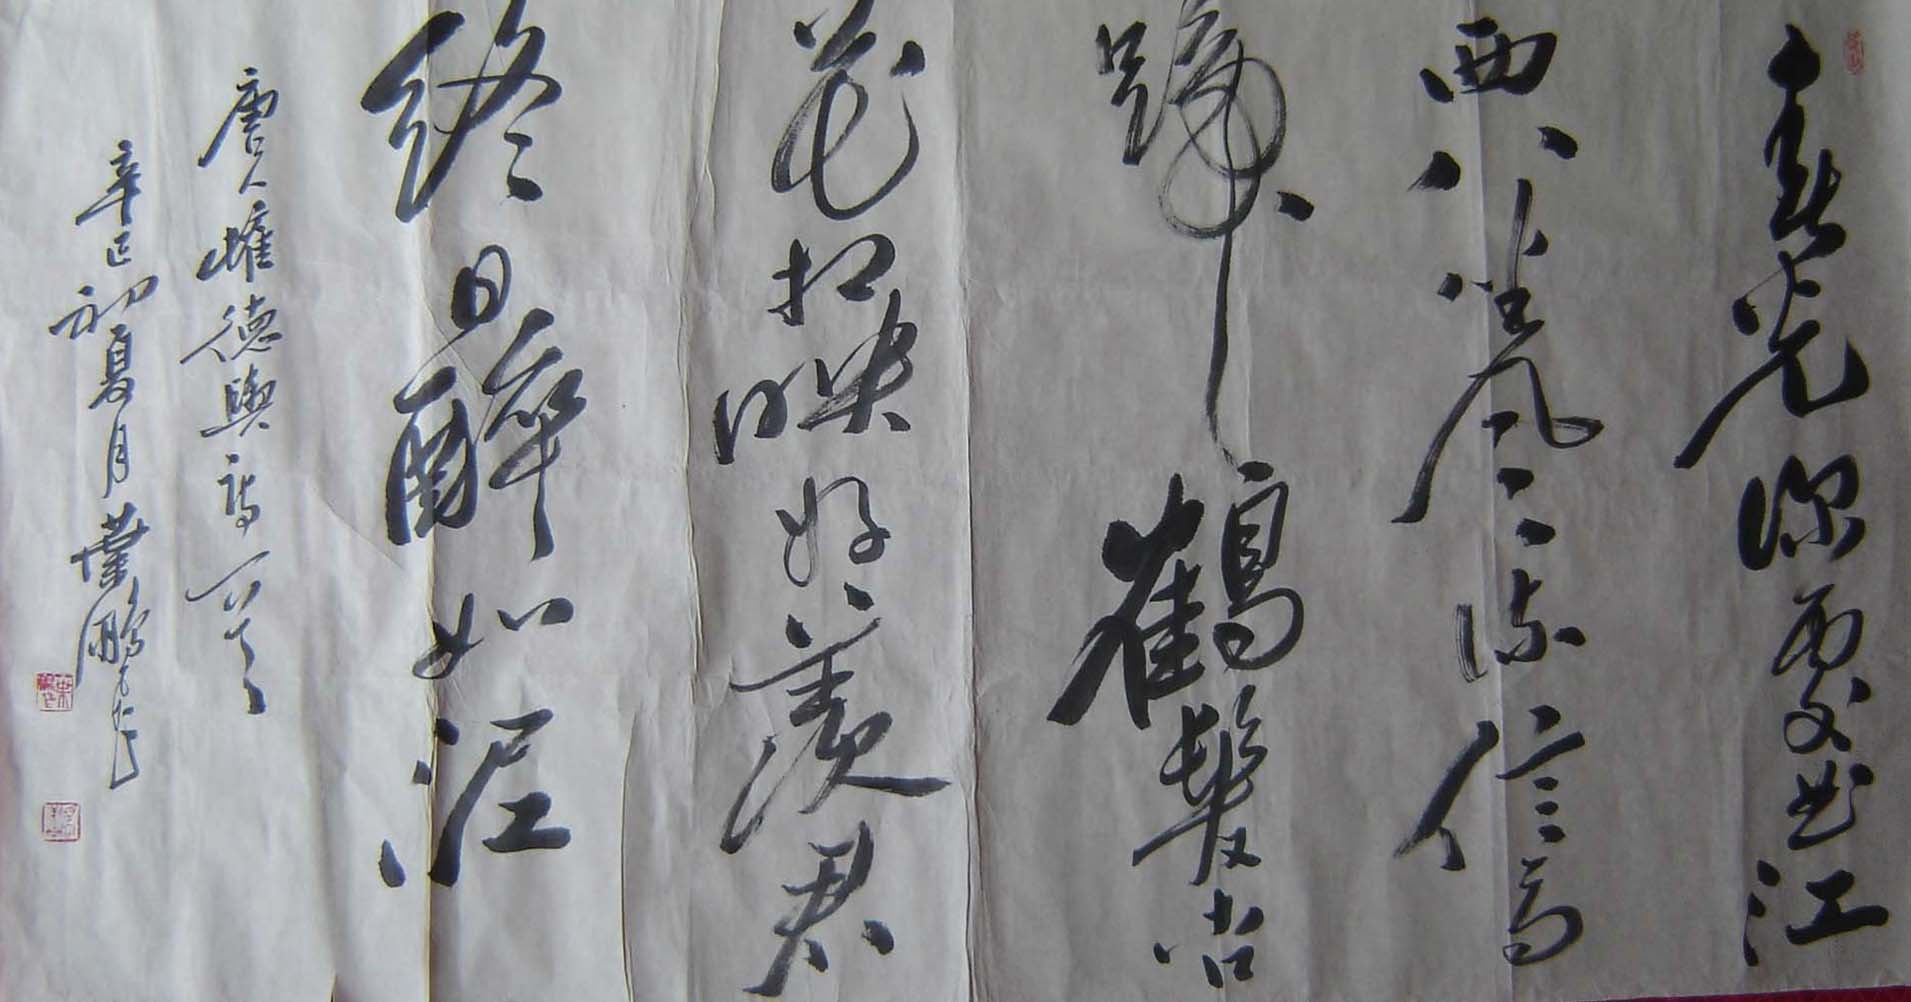 春光深處曲江
西八坐風流信馬
蹄鶴髮杏
花相映好羡君
終日醉如泥
唐人權德輿詩一首
辛巳初夏月葉鵬飛書